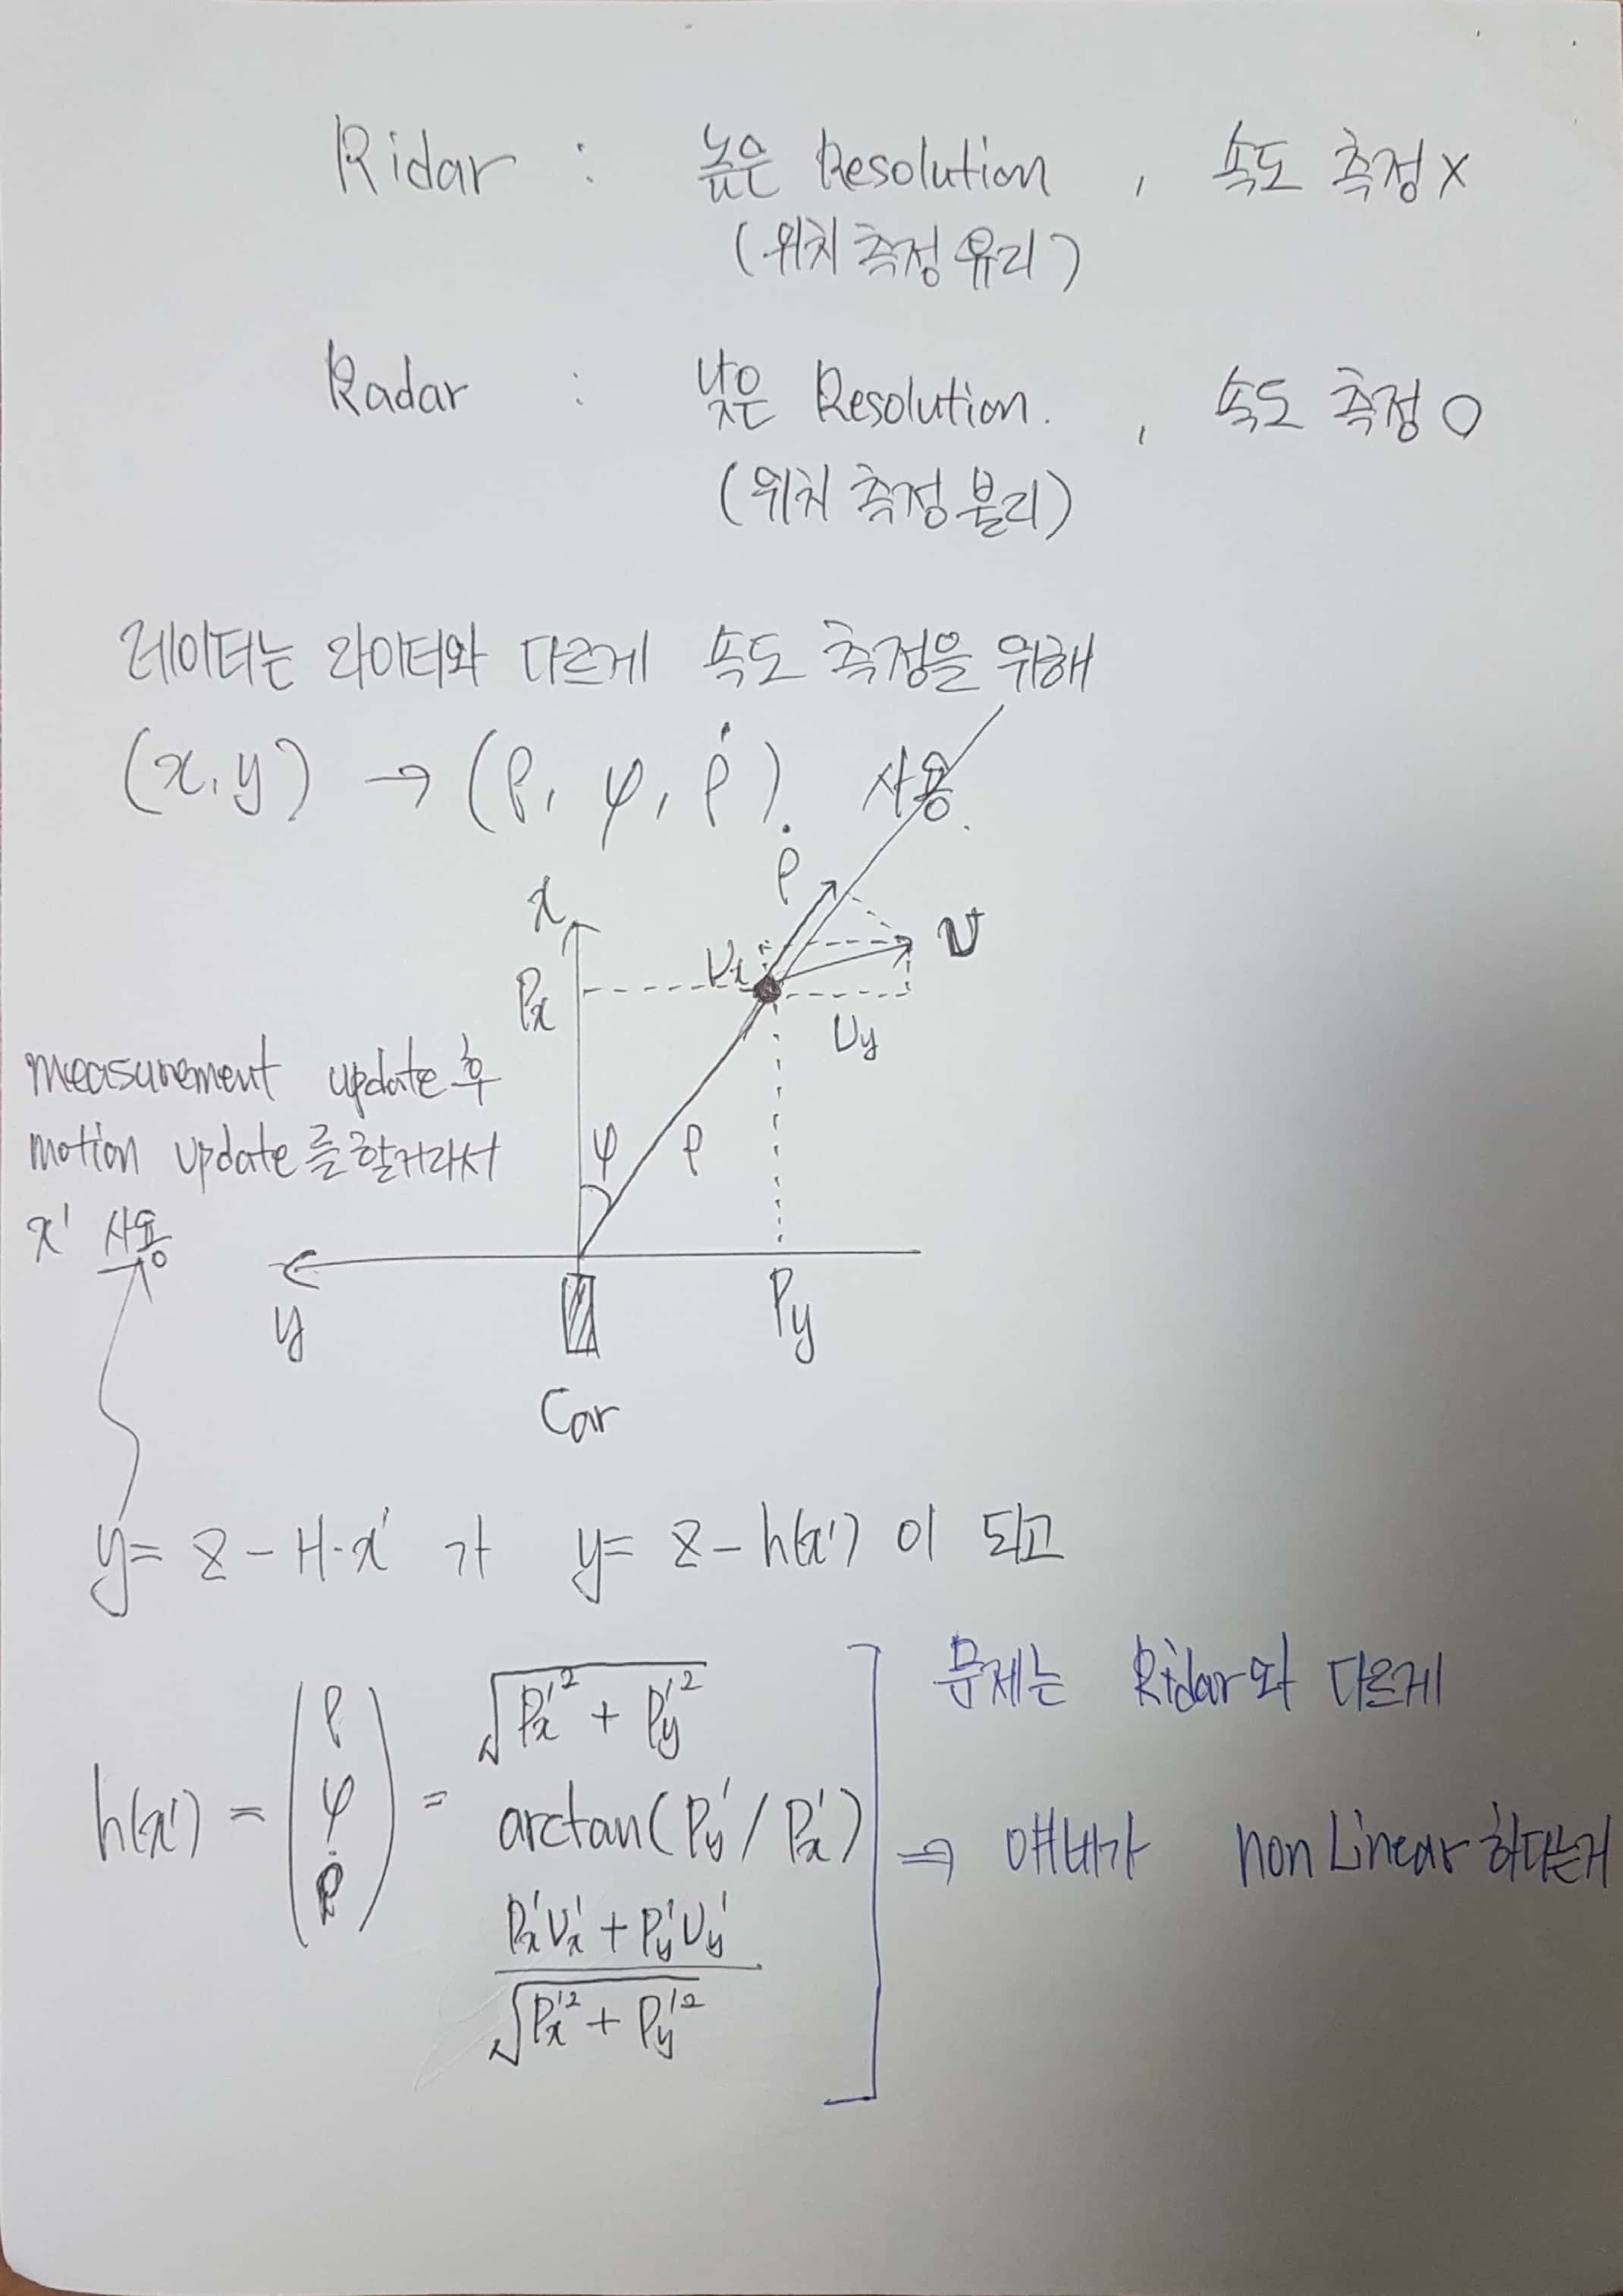 Ridar : 높은 Resolution , 속도 측정 X
(위치 측정 유리)
Radar : 낮은 Resolution. , 속도 측정 O
(위치 측정 불리)
레이더는 라이더와 다르게 속도 측정을 위해
(x, y) → (ρ, φ, ρ̇). 사용.
x
ρ̇
v
Vx
Px
Vy
measurement update 후
motion update를 할거라서
x' 사용
φ
ρ
y
Py
Car
y = z - H·x' 가 y = z - h(x') 이 되고
h(x') = (ρ φ ρ̇) = √(Px'² + Py'²)
arctan(Py' / Px')
(Px'Vx' + Py'Vy') / √(Px'² + Py'²)
문제는 Ridar와 다르게
⇒ 얘네가 non Linear 하다는거